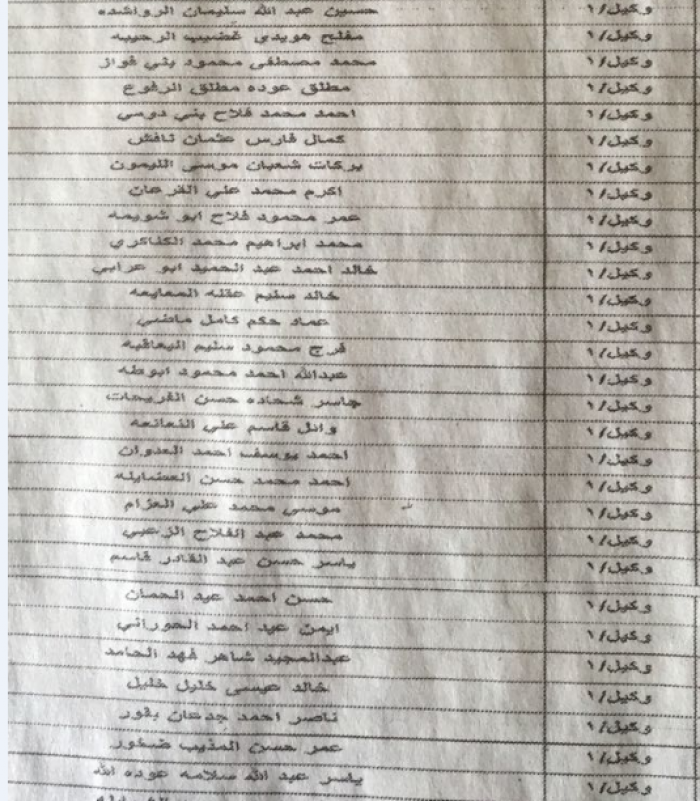 وكيل/١ حسين عبد الله سليمان الرواشده
وكيل/١ مفلح هويدي غضيب الرحيبه
وكيل/١ محمد مصطفى محمود بني فواز
وكيل/١ مطلق عوده مطلق الرفوع
وكيل/١ احمد محمد فلاح بني دومي
وكيل/١ كمال فارس عثمان نافش
وكيل/١ بركات شعبان موسى الليمون
وكيل/١ اكرم محمد علي القرعان
وكيل/١ عمر محمود فلاح ابو شويمه
وكيل/١ محمد ابراهيم محمد الكناكري
وكيل/١ خالد احمد عبد الحميد ابو عرابي
وكيل/١ خالد سليم عقله المعايعه
وكيل/١ عماد حكم كامل ماضي
وكيل/١ فرج محمود سليم اليعاقبه
وكيل/١ عبدالله احمد محمود ابوطه
وكيل/١ جاسر شحاده حسن الفريحات
وكيل/١ وائل قاسم علي
وكيل/١ احمد يوسف احمد العدوان
وكيل/١ احمد محمد حسن العضايله
وكيل/١ موسى محمد علي العزام
وكيل/١ محمد عبد الفلاح الزعبي
وكيل/١ ياسر حسن عبد القادر قاسم
وكيل/١ حسن احمد عيد الحصان
وكيل/١ ايمن عيد احمد الحوراني
وكيل/١ عبدالمجيد شاهر فهد الحامد
وكيل/١ خالد عيسى خليل خليل
وكيل/١ ناصر احمد جدعان بقور
وكيل/١ عمر حسن المذيب ضغور
وكيل/١ ياسر عبد الله سلامه عوده الله